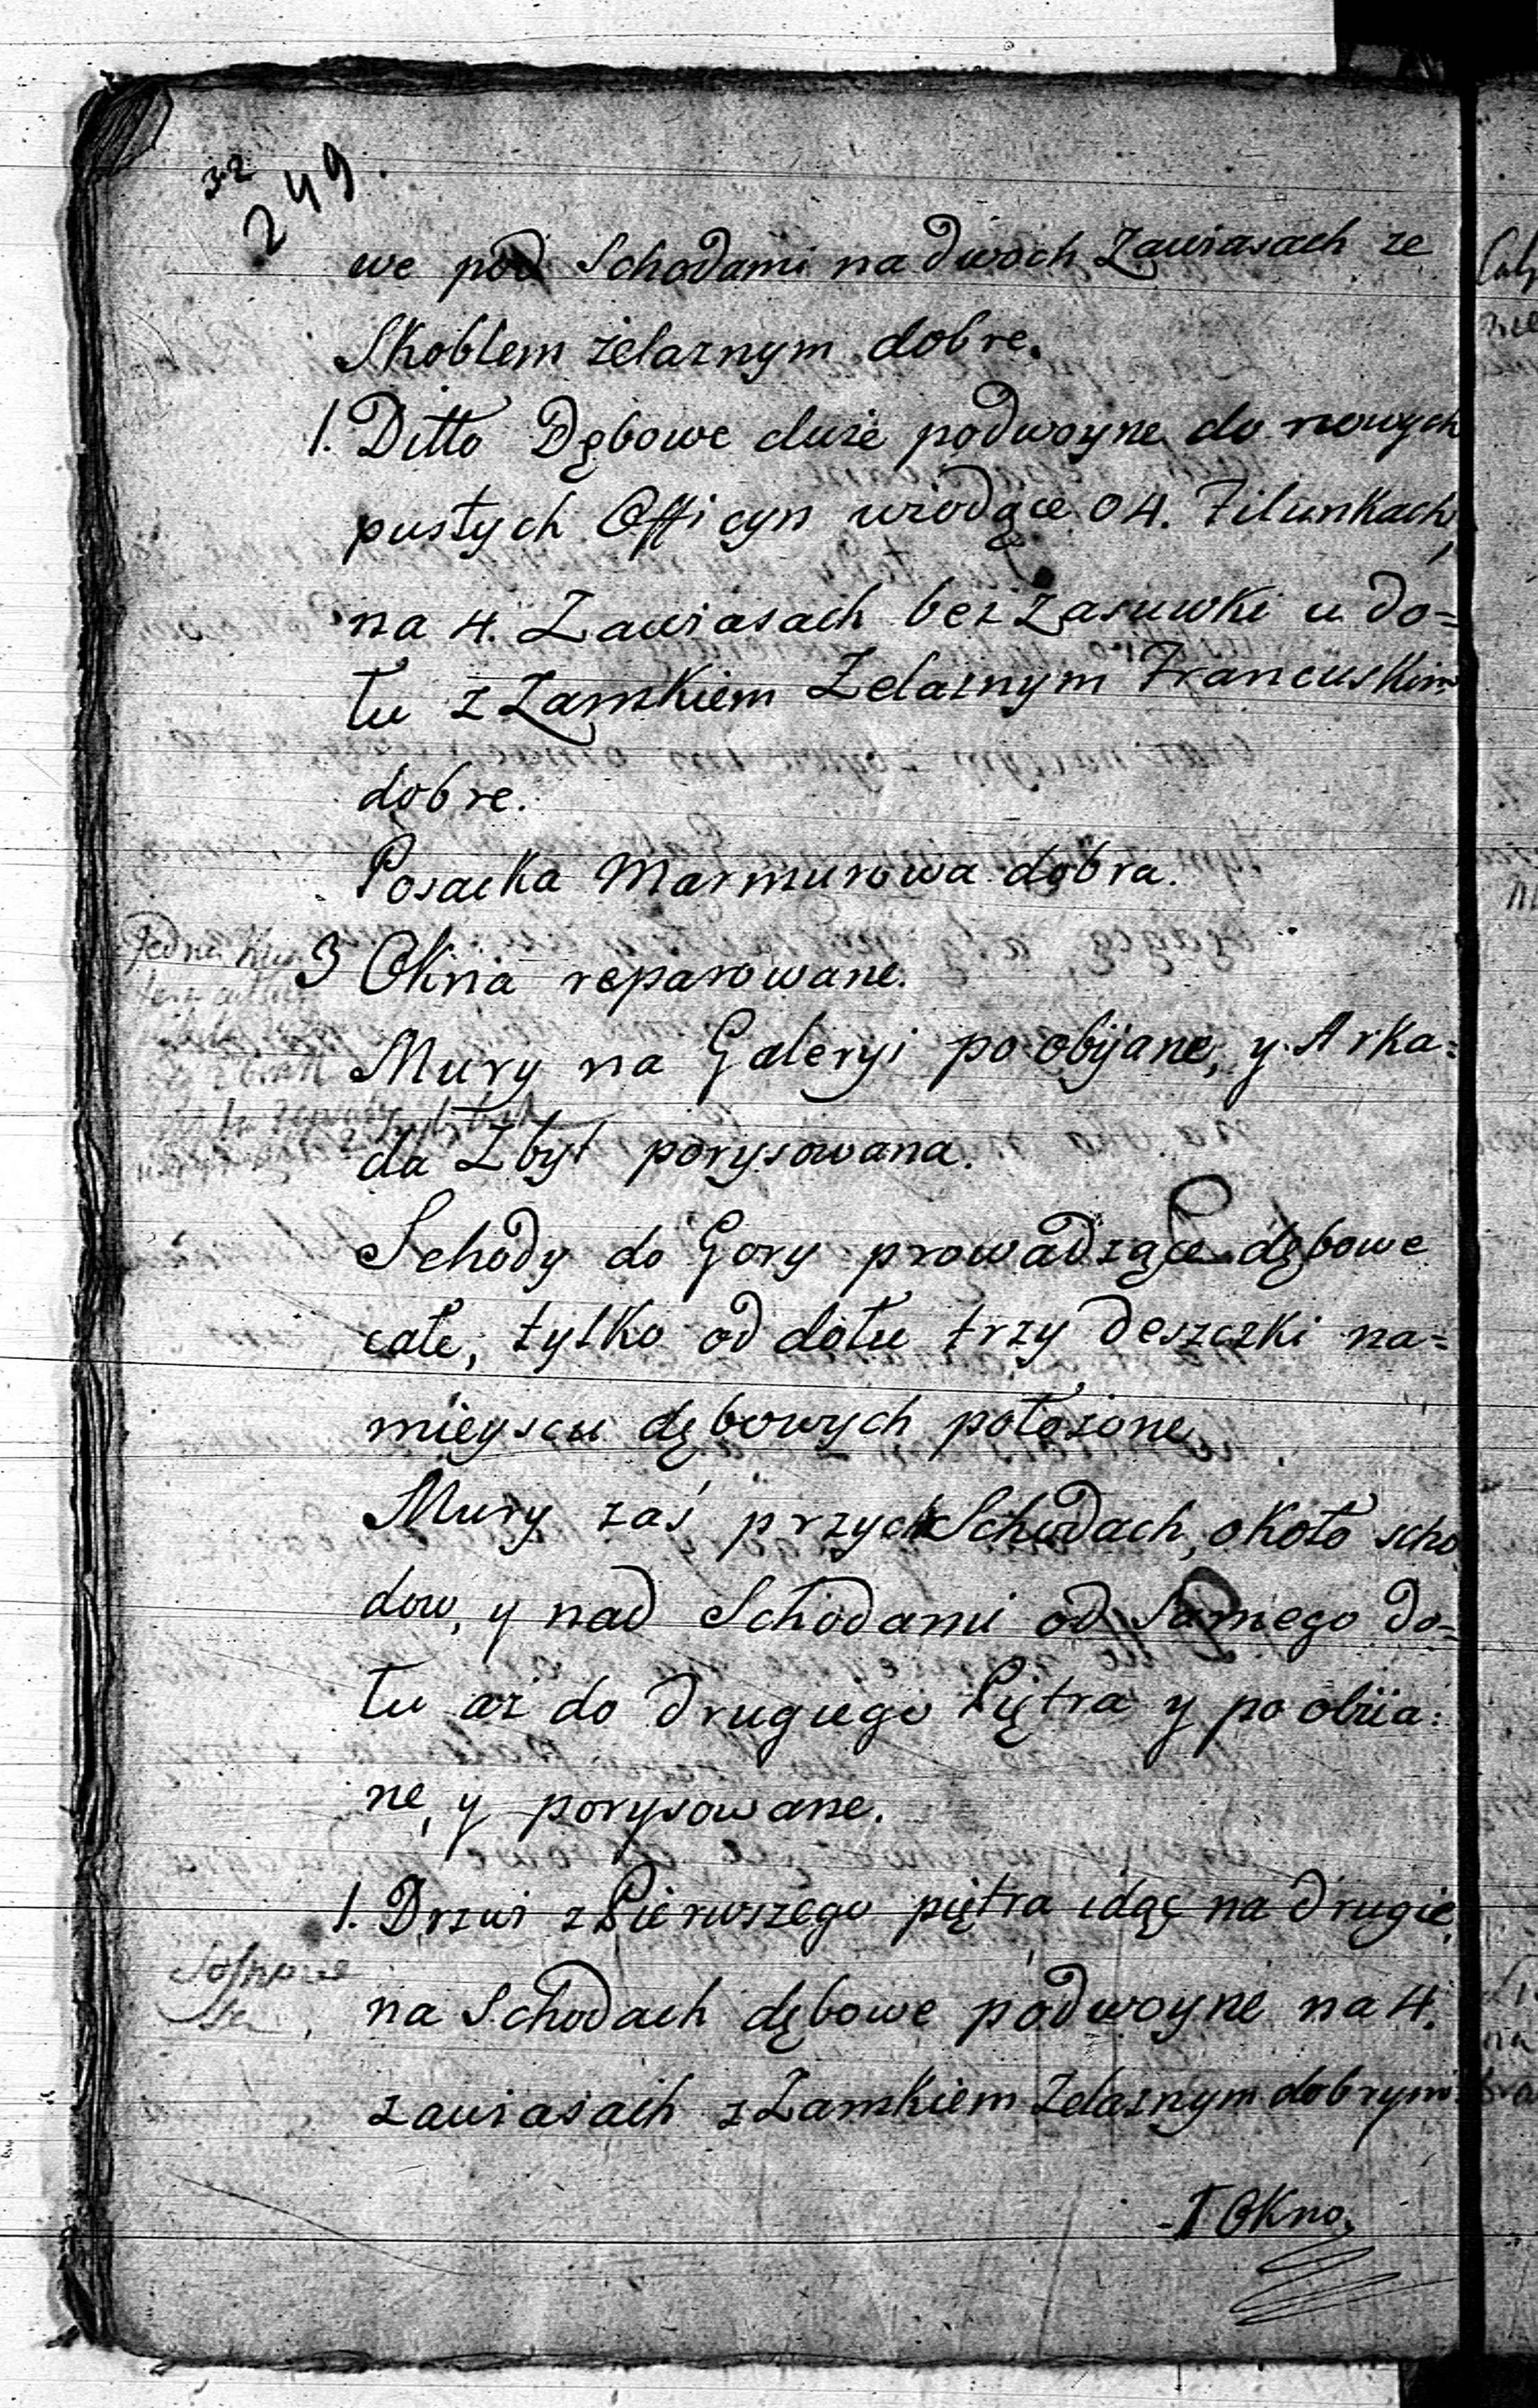 32
249.
we pod Schodami na dwoch Zawiasach ze
Skoblem żelaznym dobre.
1. Ditto Dębowe duże podwoyne do nowych
pustych Officyn wiodące o 4. Filunkach,
na 4. Zawiasach bez Zasuwki u do=
łu z Zamkiem Żelaznym Francuskim
dobre.
Posacka Marmurowa dobra.
3 Okna reparowane.
Mury na Galeryi poobijane, y Arka=
da Zbyt porysowana.
Schody do Gory prowadzące dębowe
całe, tylko od dołu trzy deszczki na=
mieyscu dębowych położone
Mury zaś przych Schodach, około scho
dow, y nad Schodami od Samego do=
łu aż do drugiego Piętra y poobiia=
ne, y porysowane.
1. Drzwi z Pierwszego piętra idąc na drugie,
Sosnowe
na Schodach dębowe podwoyne na 4.
zawiasach z Zamkiem żelaznym dobrym
I Okno,